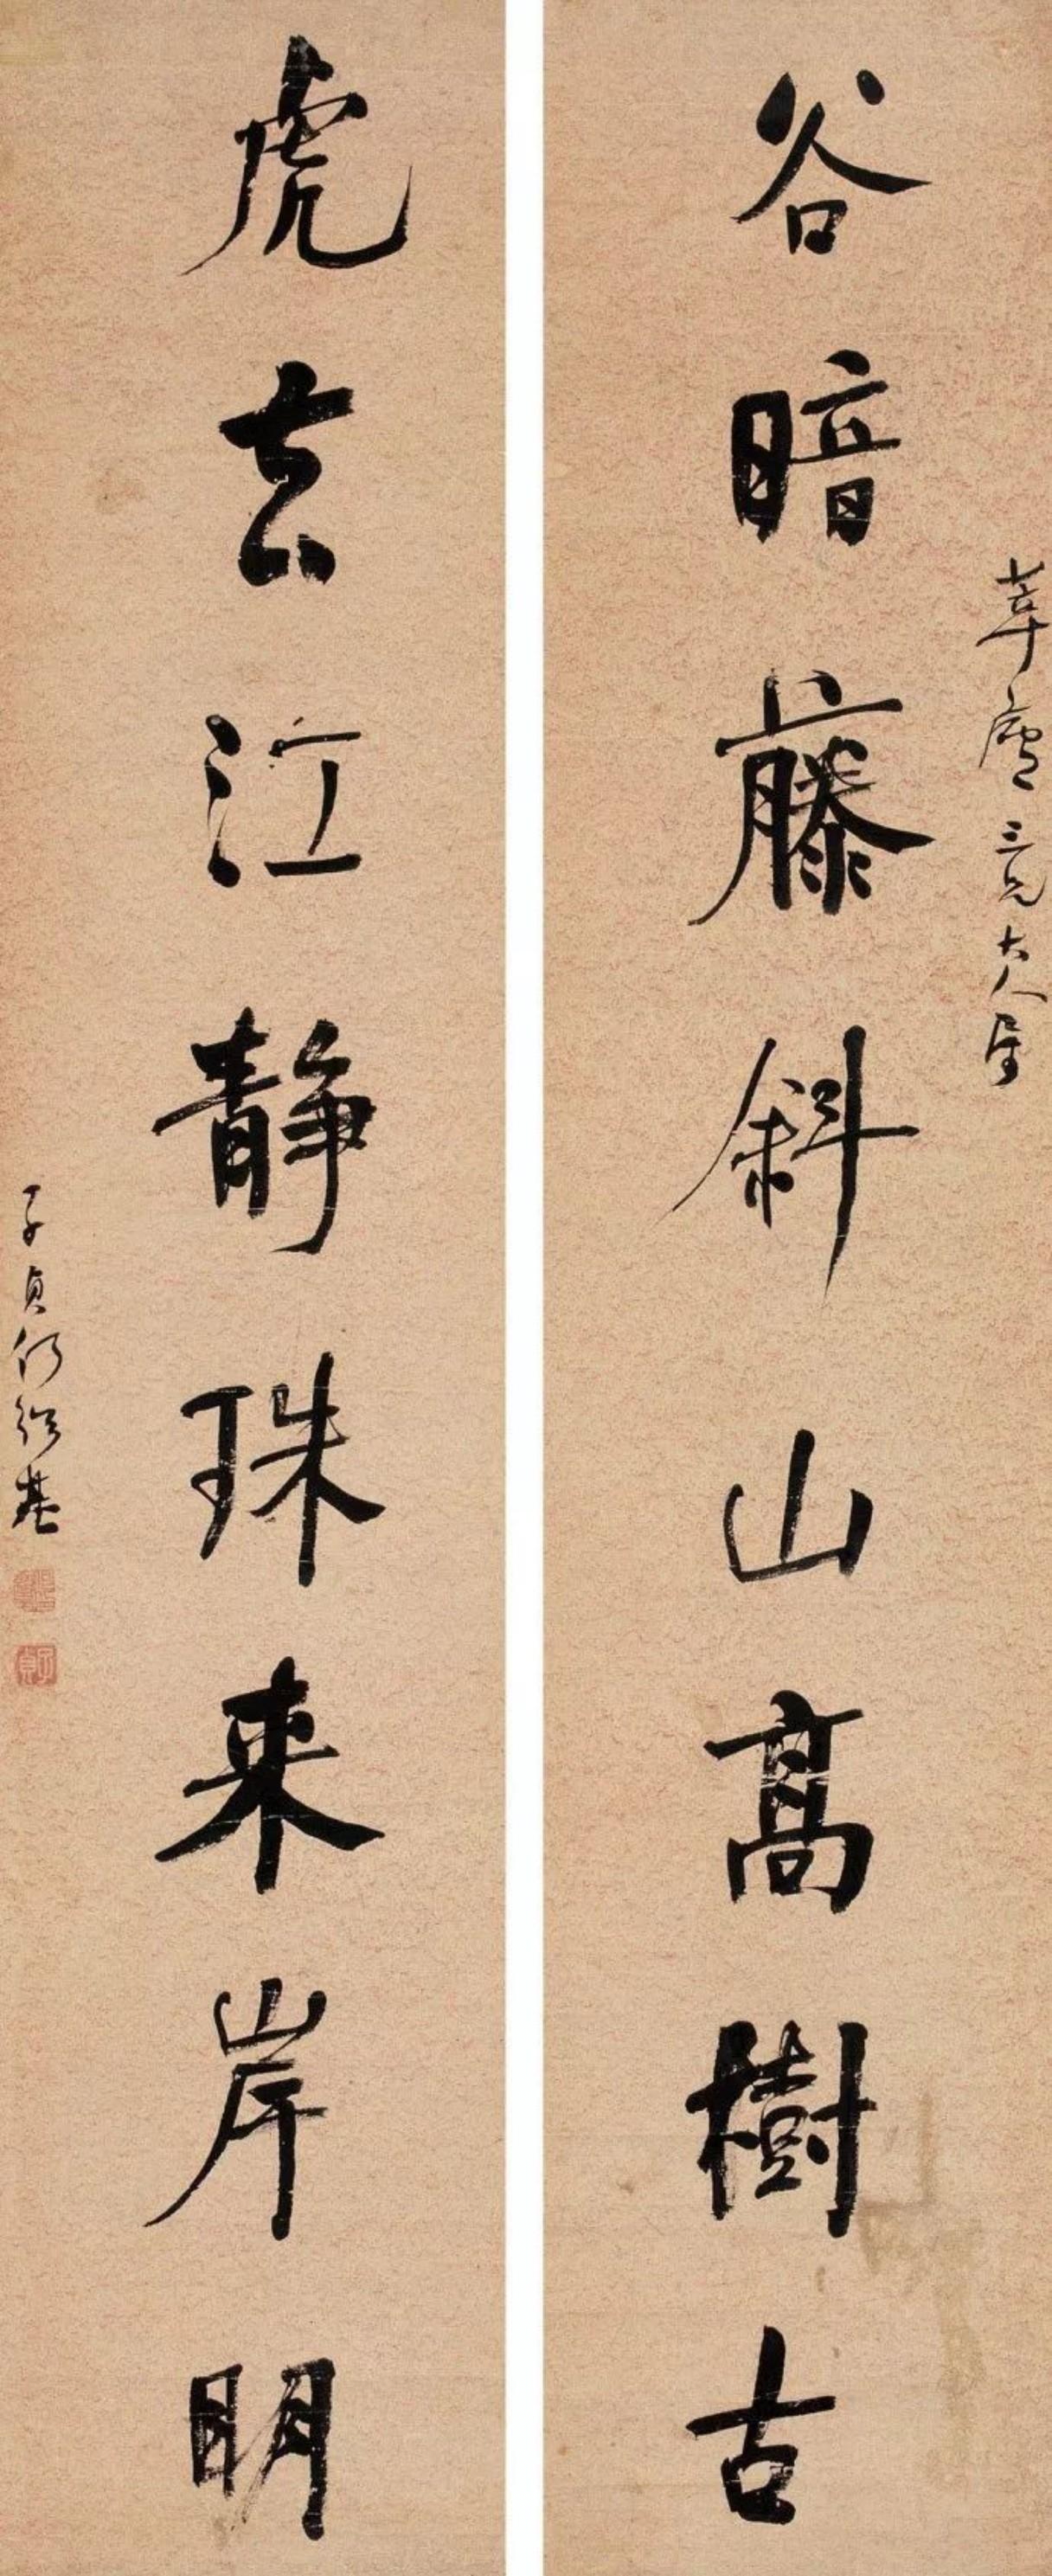 莘廬三兄大人屬
谷暗藤斜山高樹古
虎去江静珠来岸明
子貞何紹基
子貞